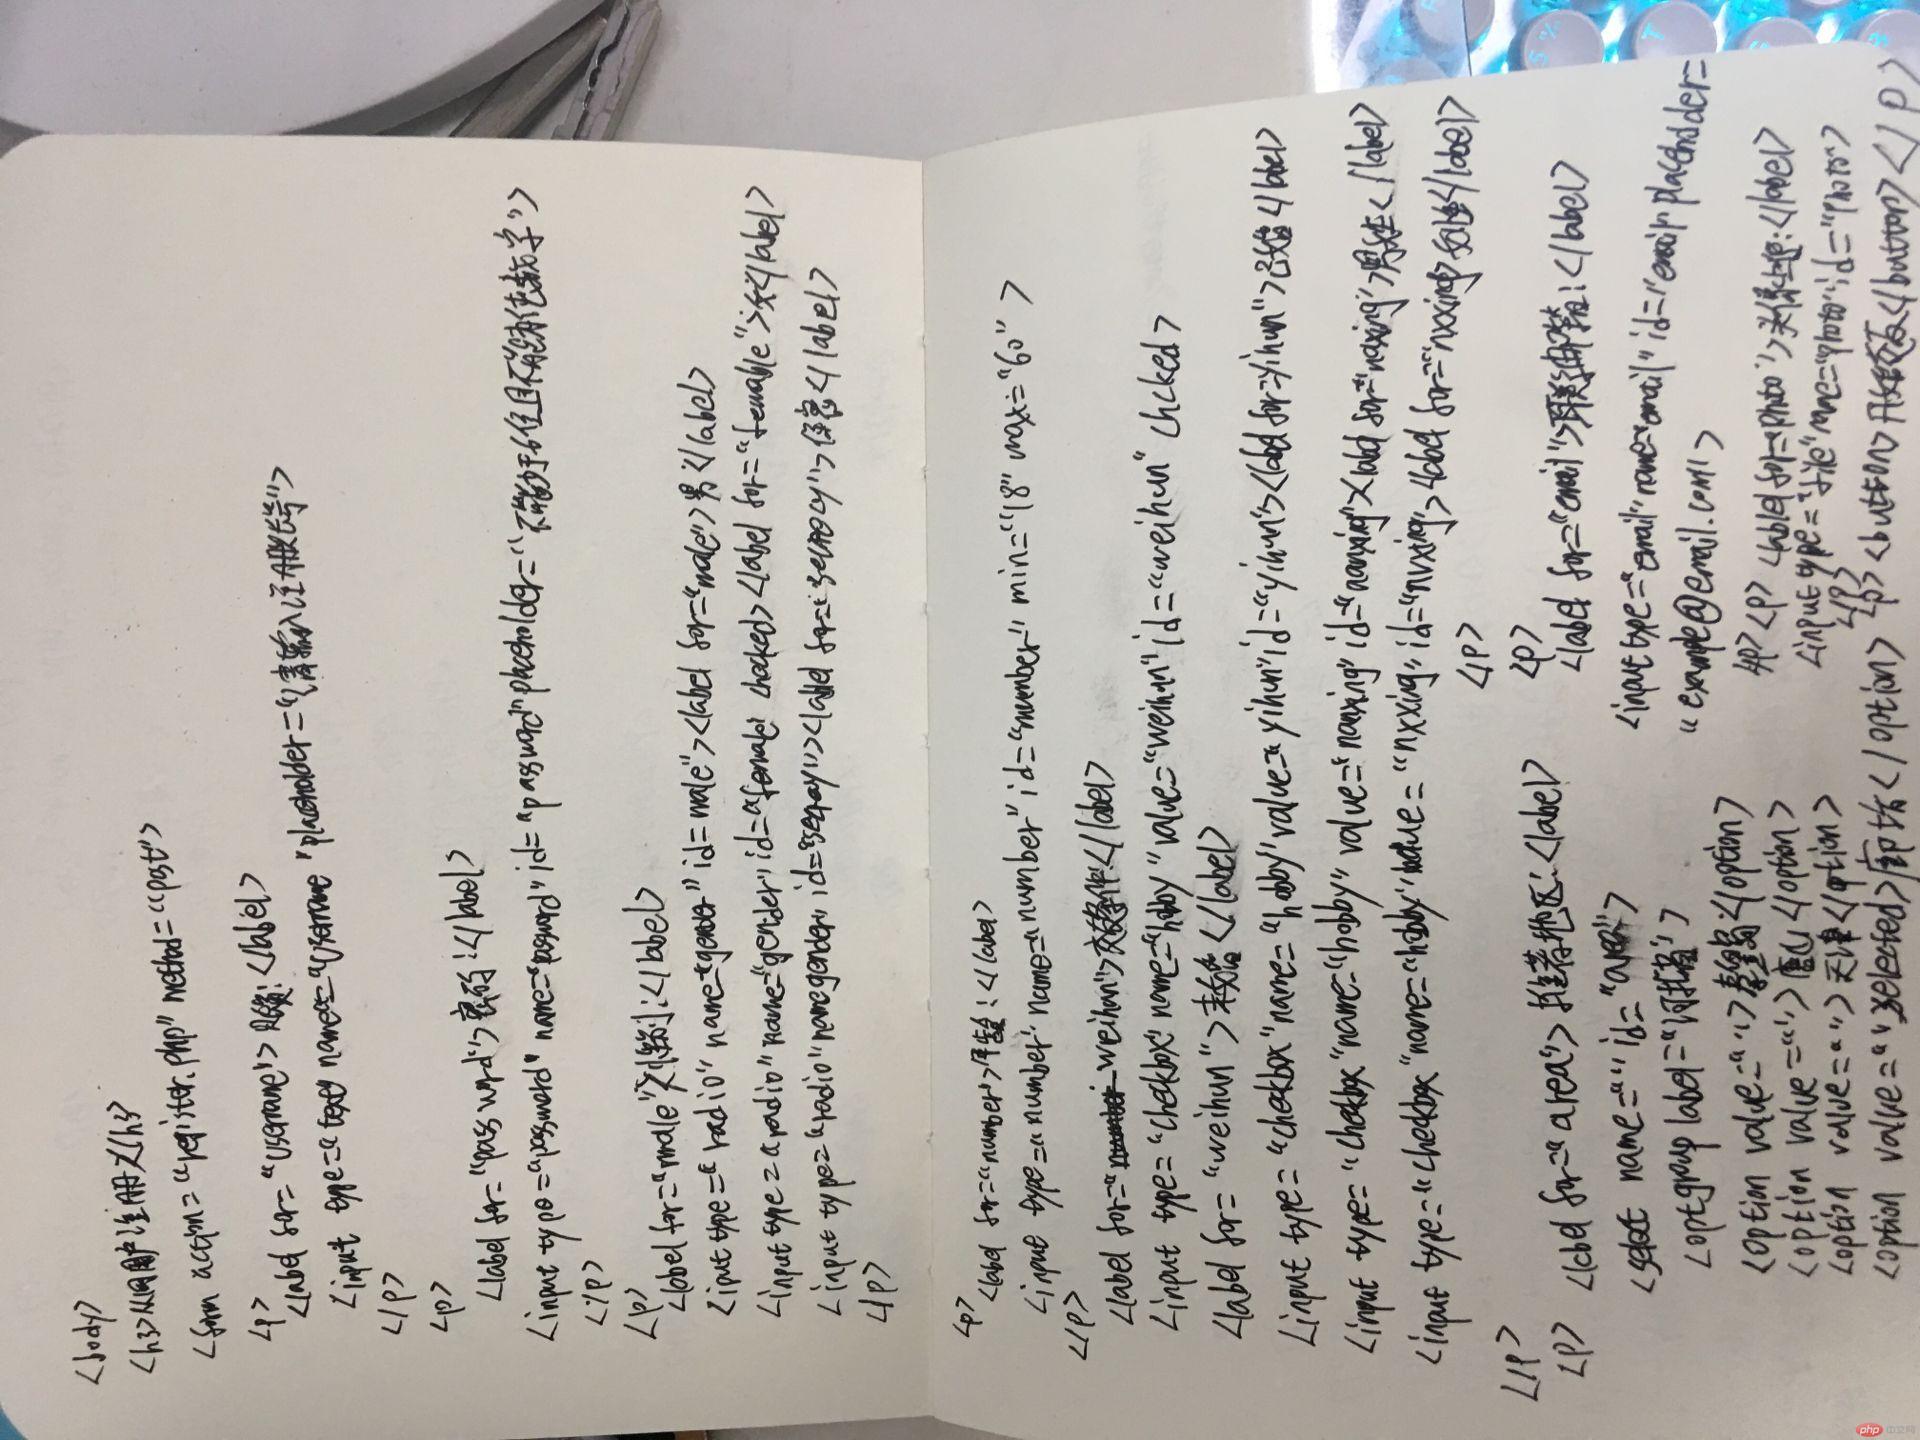 <body>
<h3>用户注册</h3>
<form action="register.php" method="post">
<p>
<label for="username">账号:</label>
<input type="text" name="username" placeholder="请输入注册账号">
</p>
<p>
<label for="password">密码:</label>
<input type="password" name="password" id="password" placeholder="不能少于6位且不能有纯数字">
</p>
<p>
<label for="male">性别:</label>
<input type="radio" name="gender" id=male"><label for="male">男</label>
<input type="radio" name="gender" id="female" checked><label for="female">女</label>
<input type="radio" name gender id="secrecy"><label for="secrecy">保密</label>
</p>
<p>
<label for="number">年龄:</label>
<input type="number" name="number" id="number" min="18" max="60">
</p>
<label for="weihun">交友条件:</label>
<input type="checkbox" name="hobby" value="weihun" id="weihun" chcked>
<label for="weihun">未婚</label>
<input type="checkbox" name="hobby" value="yihun" id="yihun"><label for=yihun">已婚</label>
<input type="checkbox" name="hobby" value="nanxing" id="nanxing"><label for="naxing">男生</label>
<input type="checkbox" name="hobby" value="nxxing" id="nvxing"><label for="nxxing"></label>
</p>
</p>
<p>
<p>
<label for="area">择偶地区:</label>
<select name="" id="area">
<optgroup label="河北省">
<option value="">秦皇岛</option>
<option value="">唐山</option>
<option value="">天津</option>
<option value="" selected></option>
<label for="email">联系邮箱:</label>
<input type="email" name="email" id="email" placeholder=
"example@email.com">
</p><p><label for="photo">上传:</label>
<input type="file" name="photo" id="photo">
</p>
<p><button>开始交友</button></p>
php中文网